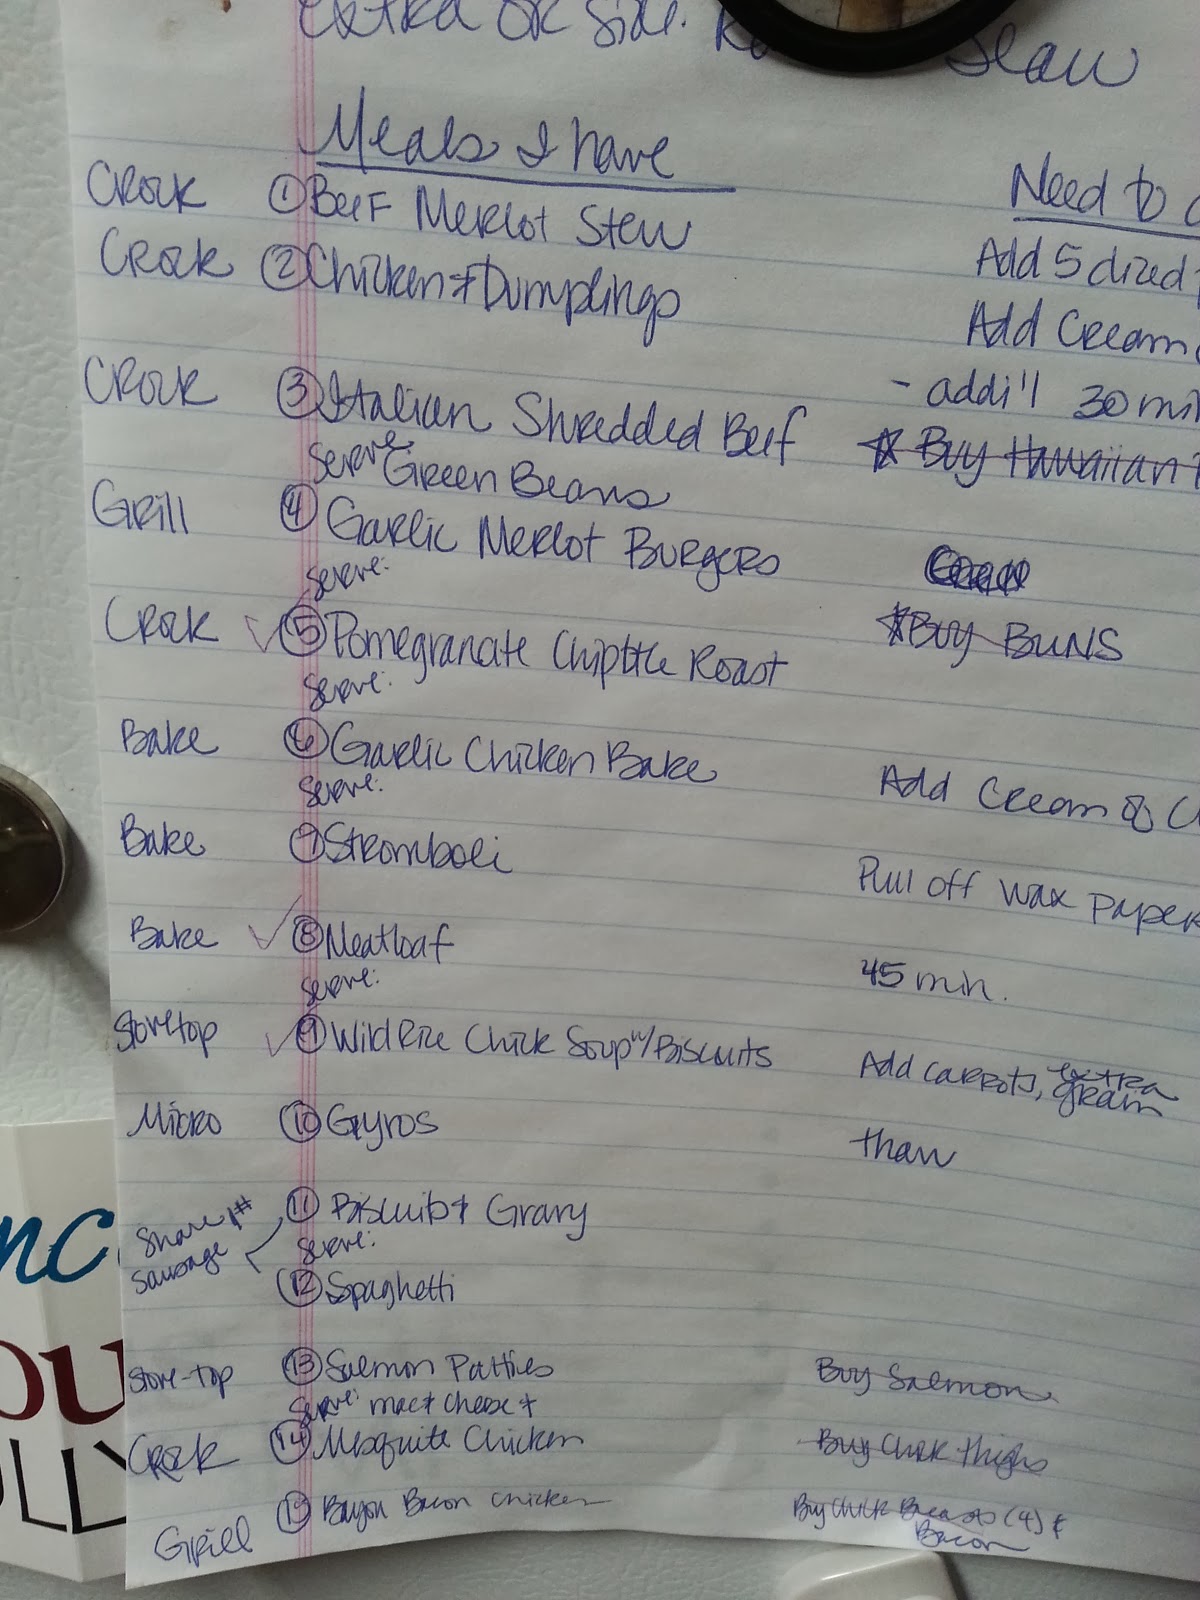 extra or side. Slaw
Meals I have
Need to
Crock ① Beef Merlot Stew
Add 5 diced
Crock ② Chicken & Dumplings
Add Cream
- addi'l 30 min
Crock ③ Italian Shredded Beef
* Buy Hawaiian
Serve: Green Beans
Grill ④ Garlic Merlot Burgers
Serve:
* Buy BUNS
Crock ✓ ⑤ Pomegranate Chipotle Roast
Serve:
Bake ⑥ Garlic Chicken Bake
Add Cream of
Serve:
Bake ⑦ Stromboli
Pull off wax paper
Bake ✓ ⑧ Meatloaf
45 min.
Serve:
Stovetop ✓ ⑨ Wild Rice Chick Soup w/Biscuits
Add carrots, extra
Micro ⑩ Gyros
thaw
Share 1#
Sausage
⑪ Biscuits & Gravy
Serve:
⑫ Spaghetti
Stove-top ⑬ Salmon Patties
Buy Salmon
Serve: mac & cheese &
Crock ⑭ Mesquite Chicken
Buy Chick thighs
Grill ⑮ Bayou Bacon Chicken
Buy Chick Breasts (4) &
Bacon
nc
OU
LLY